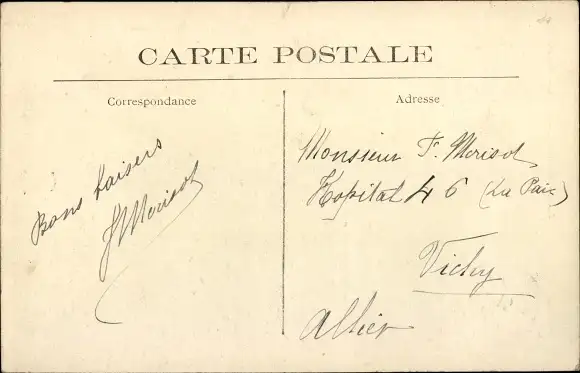 CARTE POSTALE
Correspondance
Adresse
Bons baisers
Morisot
Monsieur F. Morisot
Hopital 46 (La Paix)
Vichy
Allier